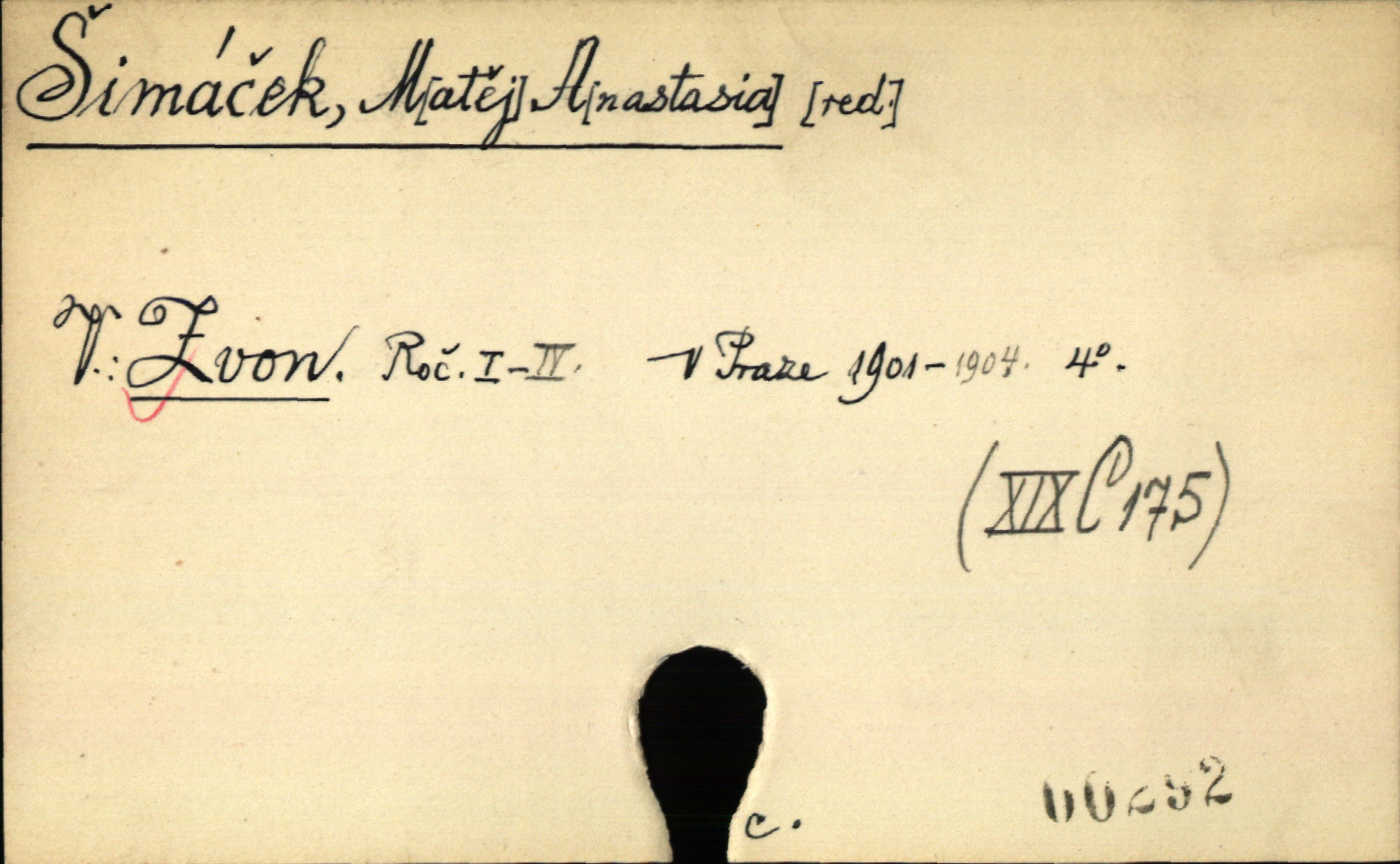 Šimáček, M[atěj] A[nastasia] [red.]
V.: Zvon. Roč. I-IV. V Praze 1901-1904. 4°.
(XIX C 175)
c.